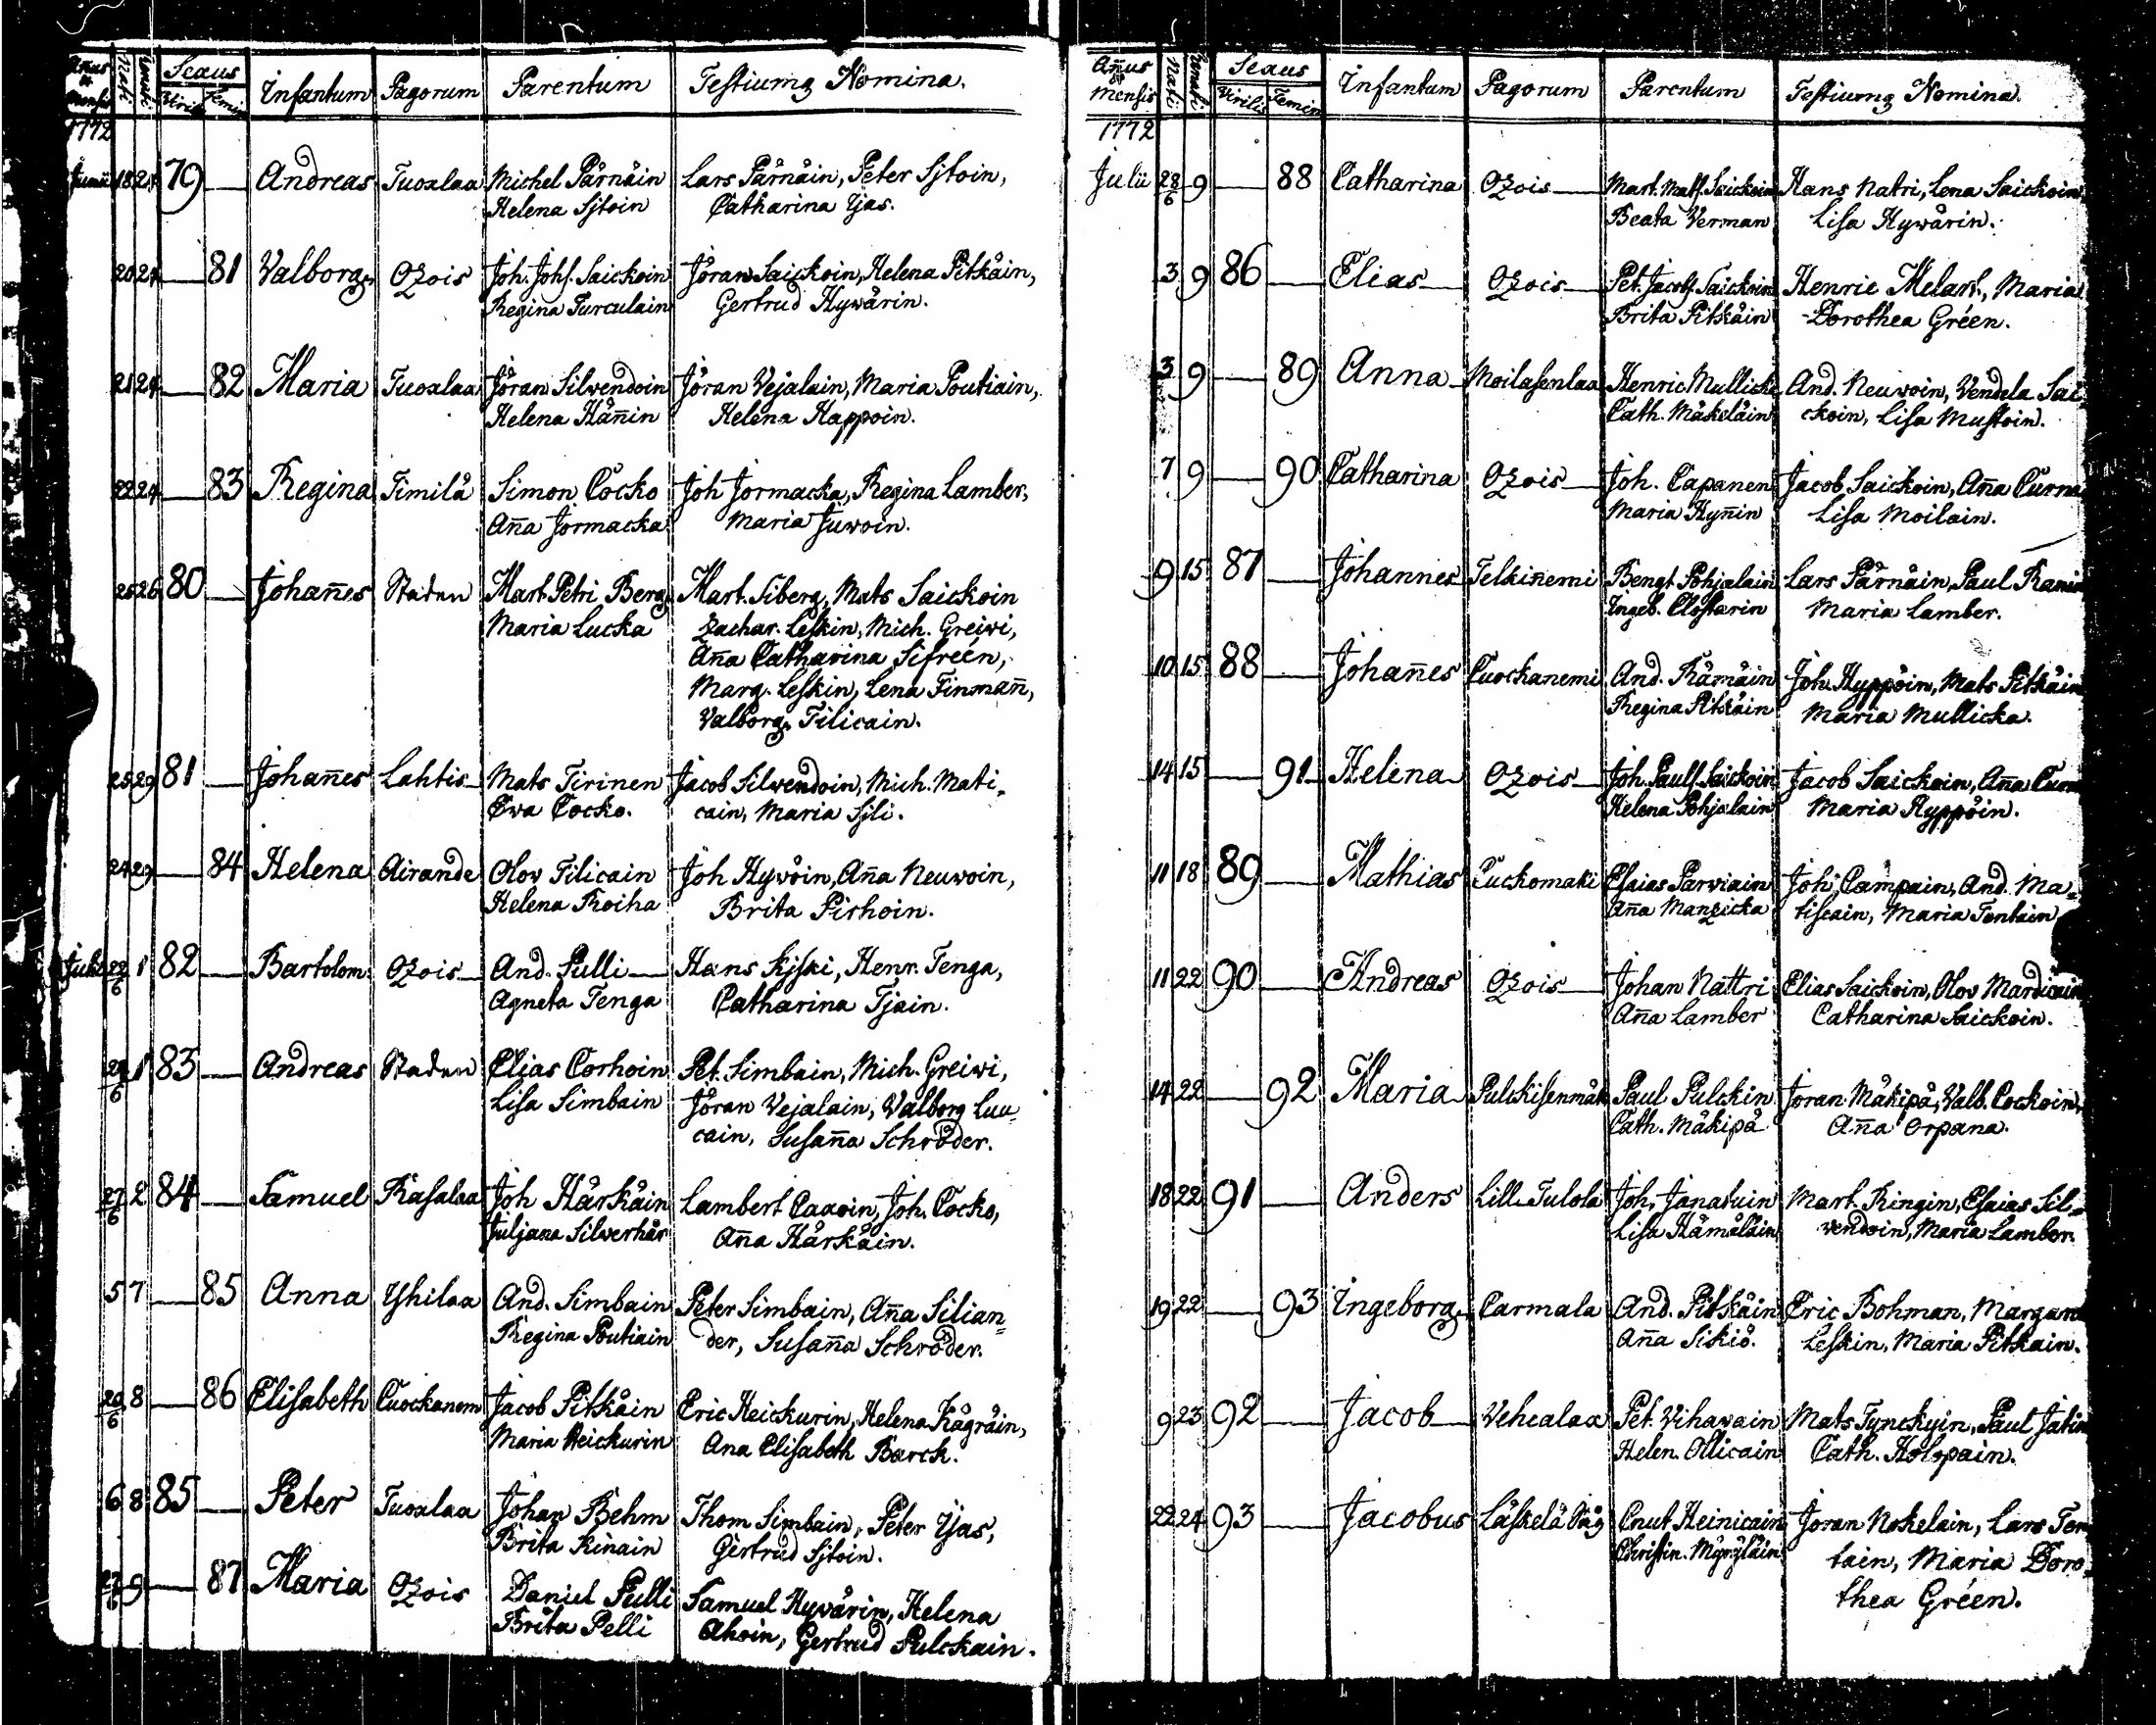 Anus & Mensis Nati Renati Sexus Virilis Femin Infantum Pagorum Parentum Testiumq Nomina.
1772
Junii 18 24 79 — Andreas Tuoxlaa Michel Pärnäin Lars Pärnäin, Peter Sjtoin,
Helena Sjtoin Catharina Yjas.
20 24 — 81 Valborg Ozois Joh. Johs. Saickoin Jöran Saickoin, Helena Pitkäin,
Regina Turculain Gertrud Hywärin.
21 24 — 82 Maria Tuoxlaa Jöran Silwendoin Jöran Vejalain, Maria Poutiain,
Helena Häñin Helena Happoin.
22 24 — 83 Regina Timilä Simon Cocko Joh Jormacka, Regina Lamber,
Aña Jormacka Maria Juwoin.
25 26 80 — Johañes Staden Mart. Petri Berg Mart. Siberg, Mats Saickoin
Maria Lucka Zachar. Leskin, Mich. Greiwi,
Aña Catharina Sifreén,
Marg. Leskin, Lena Finmañ,
Valborg. Tilicain.
25 29 81 — Johañes Lahtis Mats Tirinen Jacob Silwendoin, Mich. Mati-
Ewa Cocko. cain, Maria Sjli.
24 29 — 84 Helena Airande Olov Tilicain Joh Hywöin, Aña Neuwoin,
Helena Roiha Brita Pirhoin.
Julii 22/6 1 82 — Bartolom: Ozois And. Pulli Hans Kjski, Henr. Tenga,
Agneta Tenga Catharina Tjain.
24/6 1 83 — Andreas Staden Elias Corhoin Pet. Simbain, Mich. Greiwi,
Lisa Simbain Jöran Vejalain, Valborg Luu-
cain, Susaña Schröder.
27/6 2 84 — Samuel Rasalaa Joh Härkäin Lambert Caxoin, Joh. Cocko,
Juljana Silwerhår Aña Härkäin.
5 7 — 85 Anna Yhilaa And. Simbain Peter Simbain, Aña Silian-
Regina Poutiain der, Susaña Schröder.
20/6 8 — 86 Elisabeth Cuockanem Jacob Pitkäin Eric Heickurin, Helena Kägräin,
Maria Heickurin Ana Elisabeth Barck.
6 8 85 — Peter Tuoxlaa Johan Behm Thom Simbain, Peter Yjas,
Brita Kinain Gertrud Sjtoin.
27/6 9 — 87 Maria Ozois Daniel Pulli Samuel Hywärin, Helena
Brita Pelli Ahoin, Gertrud Pulckain.
Añus & Mensis Nati Renati Sexus Virilis Femin Infantum Pagorum Parentum Testiumq Nomina.
1772
Julii 28/6 9 — 88 Catharina Ozois Mart. Mats. Saickoin Hans Natri, Lena Saickoin
Beata Verman Lisa Hywärin.
3 9 86 — Elias Ozois Pet. Jacobs. Saickoin Henric Melart, Maria
Brita Pitkäin Dorothea Gréen.
3 9 — 89 Anna Moilasenlaa Henric Mullicka And. Neuwoin, Vendela Sai-
Cath. Mäkeläin ckoin, Lisa Mustoin.
7 9 — 90 Catharina Ozois Joh. Capanen Jacob Saickoin, Aña
Maria Hyñin Lisa Moilain.
9 15 87 — Johannes Telkiñemi Bengt Pohjalain Lars Pärnäin, Paul
Ingeb. Clostarin Maria Lamber.
10 15 88 — Johañes Cuockanemi And. Rämäin Joh. Hyppöin, Mats Pitkäin
Regina Pitkäin Maria Mullicka.
14 15 — 91 Helena Ozois Joh. Pauls. Saickoin Jacob Saickoin, Aña
Helena Pohjalain Maria Hyppöin.
11 18 89 — Mathias Cuckomaki Esaias Parwiain Joh. Campain, And. Ma-
Aña Manzicka tiscain, Maria Tentain
11 22 90 — Andreas Ozois Johan Nattri Elias Saickoin, Olov Mardicain
Aña Lamber Catharina Saickoin.
14 22 — 92 Maria Pulckisenmäk Paul Pulckin Joran Mäkipä, Valb. Cockoin,
Cath. Mäkipä Aña Orpana.
18 22 91 — Anders Lill Tulola Joh. Janatuin Mart. Ringin, Esaias Sil-
Lisa Hämäläin vendoin, Maria Lamber.
19 22 — 93 Ingeborg Carmala And. Pitkäin Eric Bohman, Margar
Aña Sikiö. Leskin, Maria Pitkain.
9 23 92 — Jacob Vehcalax Pet. Vihawain Mats Tynckyin, Paul
Helen. Ollicain Cath. Holopain.
22 24 93 — Jacobus Läskelä Såg Cnut Heinicain Joran Nokelain, Lars Ten
Christin. Mäyräläin tain, Maria Doro-
thea Gréen.